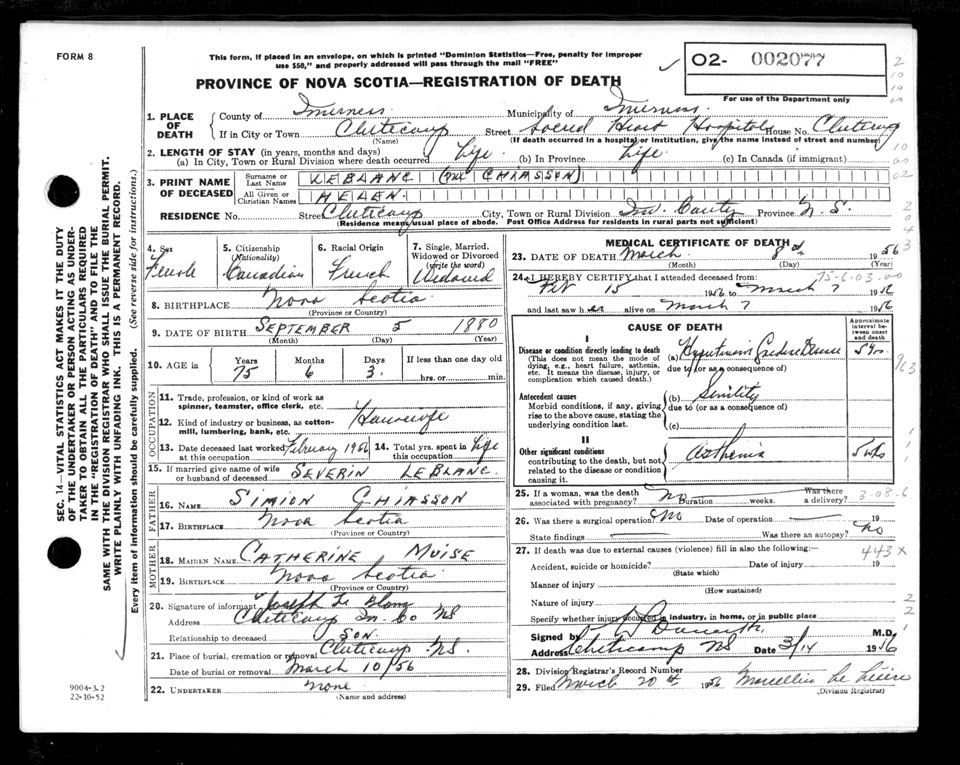 FORM 8
This form, if placed in an envelope, on which is printed "Dominion Statistics—Free, penalty for improper
use $50," and properly addressed will pass through the mail "FREE"
PROVINCE OF NOVA SCOTIA—REGISTRATION OF DEATH
02- 002077
For use of the Department only
1. PLACE OF DEATH
County of Inverness Municipality of Inverness
If in City or Town Cheticamp Street Sacred Heart Hospital House No. Cheticamp
(Name) (If death occurred in a hospital or institution, give the name instead of street and number)
2. LENGTH OF STAY (in years, months and days)
(a) In City, Town or Rural Division where death occurred Life (b) In Province Life (c) In Canada (if immigrant)
3. PRINT NAME OF DECEASED
Surname or Last Name LEBLANC (nee CHIASSON)
All Given or Christian Names HELEN
RESIDENCE No. Street Cheticamp City, Town or Rural Division Inv. County Province N.S.
(Residence means usual place of abode. Post Office Address for residents in rural parts not sufficient)
4. Sex Female
5. Citizenship (Nationality) Canadian
6. Racial Origin French
7. Single, Married, Widowed or Divorced (write the word) Widowed
8. BIRTHPLACE Nova Scotia
(Province or Country)
9. DATE OF BIRTH SEPTEMBER 5 1880
(Month) (Day) (Year)
10. AGE in Years 75 Months 6 Days 3 If less than one day old hrs. or min.
OCCUPATION
11. Trade, profession, or kind of work as spinner, teamster, office clerk, etc.
12. Kind of industry or business, as cotton-mill, lumbering, bank, etc. Housewife
13. Date deceased last worked at this occupation February 1956
14. Total yrs. spent in this occupation Life
15. If married give name of wife or husband of deceased SEVERIN LEBLANC
FATHER
16. NAME SIMION CHIASSON
17. BIRTHPLACE Nova Scotia
(Province or Country)
MOTHER
18. MAIDEN NAME CATHERINE MUISE
19. BIRTHPLACE Nova Scotia
(Province or Country)
20. Signature of informant Joseph Le Blanc
Address Cheticamp In. Co NS
Relationship to deceased SON
21. Place of burial, cremation or removal Cheticamp NS.
Date of burial or removal March 10/56
22. UNDERTAKER None
(Name and address)
MEDICAL CERTIFICATE OF DEATH
23. DATE OF DEATH March 8 1956
(Month) (Day) (Year)
24. I HEREBY CERTIFY that I attended deceased from: 75-6-03.00
Feb 15 1956 to March 7 1956
and last saw her alive on March 7 1956
CAUSE OF DEATH
Approximate interval between onset and death
I
Disease or condition directly leading to death
(This does not mean the mode of dying, e.g., heart failure, asthenia, etc. It means the disease, injury, or complication which caused death.)
(a) 5 yrs
due to (or as a consequence of)
Antecedent causes
Morbid conditions, if any, giving rise to the above cause, stating the underlying condition last.
(b) Senility
due to (or as a consequence of)
(c)
II
Other significant conditions
contributing to the death, but not related to the disease or condition causing it.
Asthenia 5 wks
25. If a woman, was the death associated with pregnancy? No Duration weeks. Was there a delivery? 3.08.6
26. Was there a surgical operation? No Date of operation 19
State findings Was there an autopsy? No
27. If death was due to external causes (violence) fill in also the following:— 443X
Accident, suicide or homicide? Date of injury 19
(State which)
Manner of injury
(How sustained)
Nature of injury
Specify whether injury occurred in industry, in home, or in public place
Signed by M.D.
Address Cheticamp NS Date 3/14 1956
28. Division Registrar's Record Number
29. Filed March 20th 1956 Marcellin
(Division Registrar)
9004-3.2
22-10-52
SEC. 14—VITAL STATISTICS ACT MAKES IT THE DUTY
OF THE UNDERTAKER OR PERSON ACTING AS UNDER-
TAKER TO OBTAIN ALL THE PARTICULARS REQUIRED
IN THE "REGISTRATION OF DEATH" AND TO FILE THE
SAME WITH THE DIVISION REGISTRAR WHO SHALL ISSUE THE BURIAL PERMIT.
WRITE PLAINLY WITH UNFADING INK. THIS IS A PERMANENT RECORD.
Every item of information should be carefully supplied. (See reverse side for instructions.)